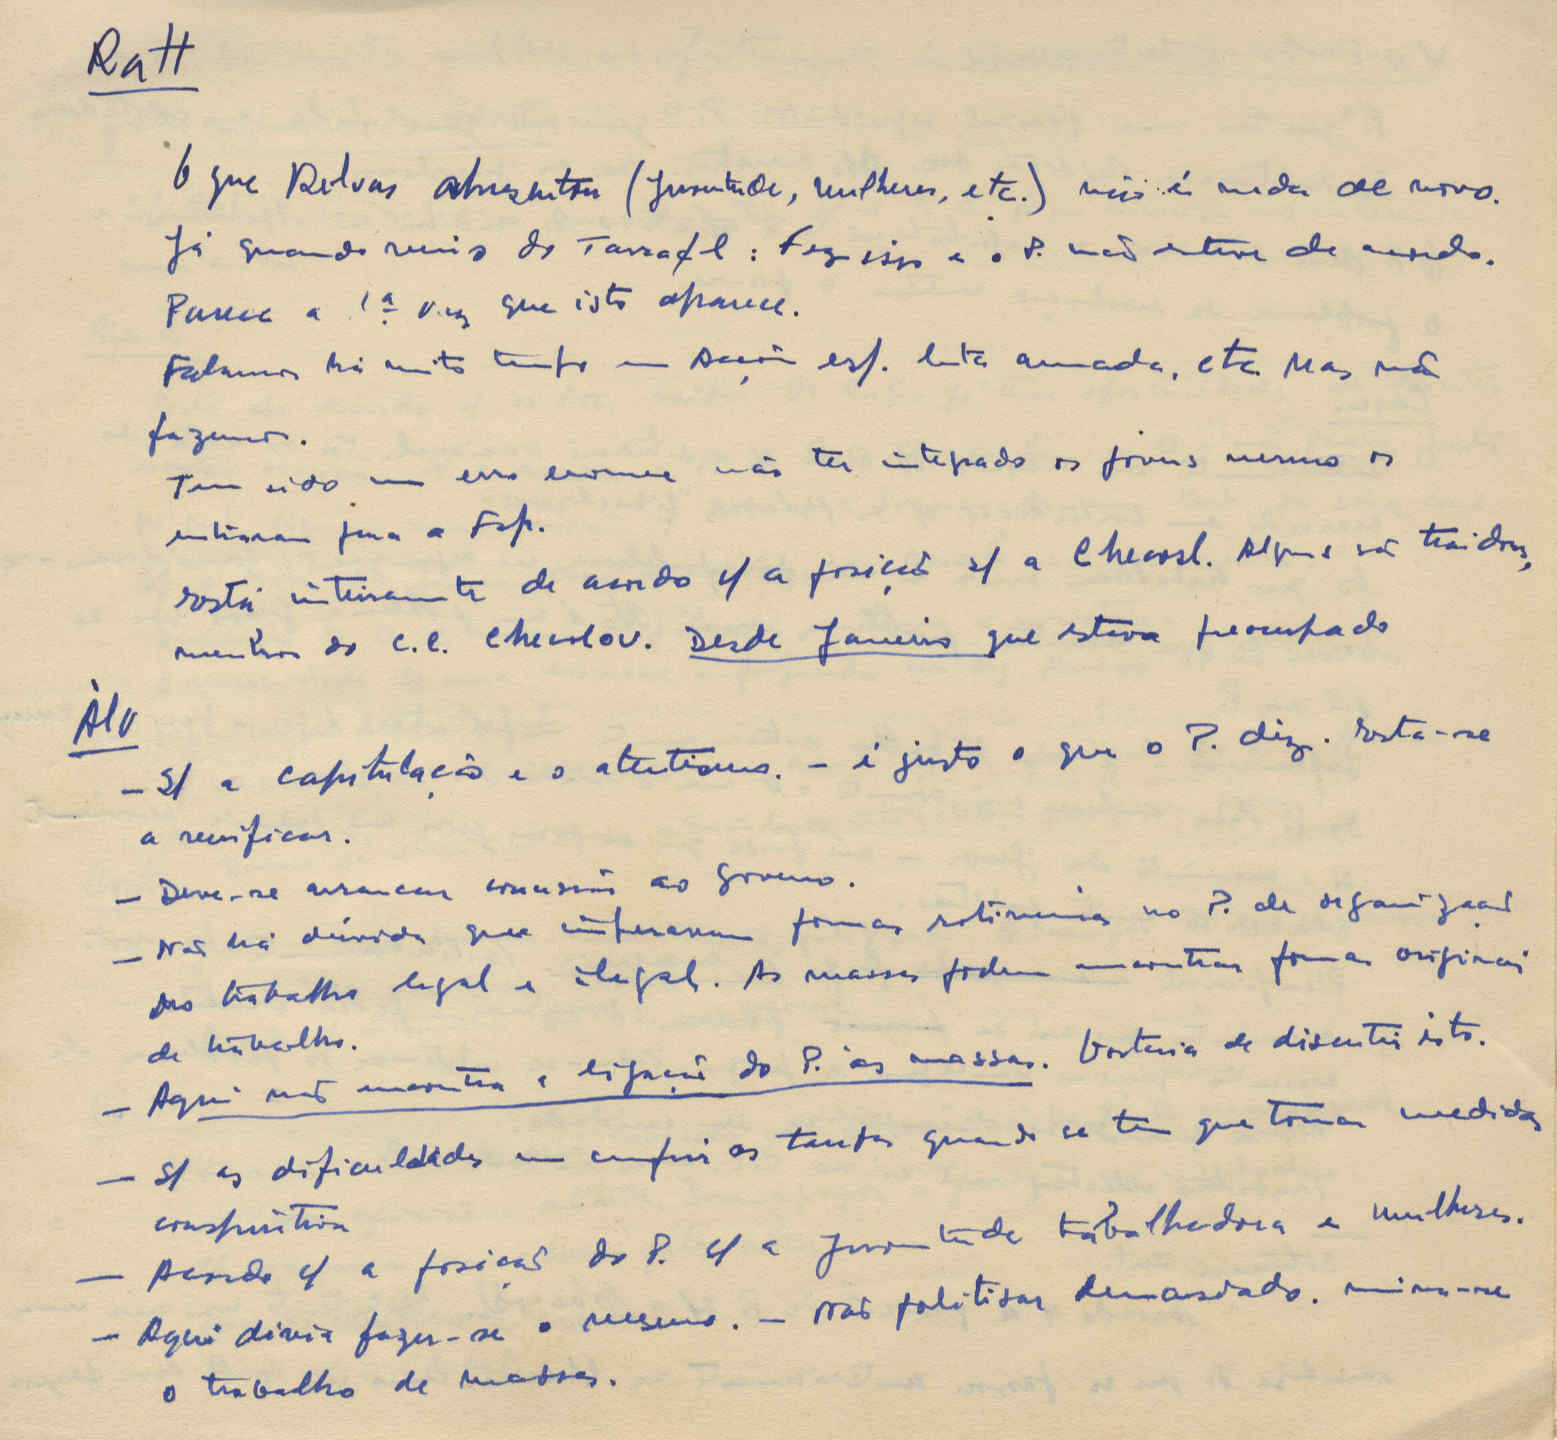 Ratt
O que Relvas apresentou (Juventude, mulheres, etc.) não é nada de novo.
Já quando veio do Tarrafal: Fez isso e o P. não esteve de acordo.
Parece a 1ª vez que isto aparece.
Falamos há muito tempo em Acção esp. luta armada, etc. Mas não
fazemos.
Tem sido um erro enorme não ter integrado os jovens mesmo os
entraram para a Esp.
Está inteiramente de acordo c/ a posição s/ a Checosl. Alguns são traidores,
membros do C.C. Checoslov. Desde Janeiro que estava preocupado
Álv
- S/ a capitulação e o atentismo. - é justo o que o P. diz. Está-se
a verificar.
- Deve-se arrancar concessões ao Governo.
- Não há dúvida que imperavam formas rotineiras no P. de organização
do trabalho legal e ilegal. As massas podem encontrar formas originais
de trabalho.
- Aqui não encontra a ligação do P. às massas. Gostaria de discutir isto.
- S/ as dificuldades em cumprir as tarefas quando se tem que tomar medidas
conspirativas
- Acordo c/ a posição do P. c/ a Juventude trabalhadora e mulheres.
- Aqui divia fazer-se o mesmo. - Não politizar demasiado. mina-se
o trabalho de massas.